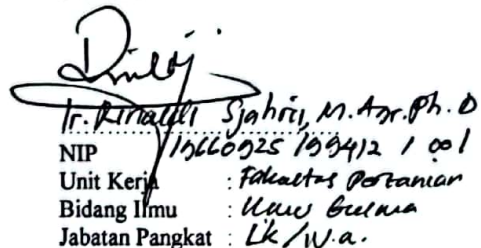 Ir. Rinaldi Sjahril, M.Agr. Ph.D
NIP 19660925 199412 1 001
Unit Kerja : Fakultas Pertanian
Bidang Ilmu : Ilmu
Jabatan Pangkat : LK / IV.a.